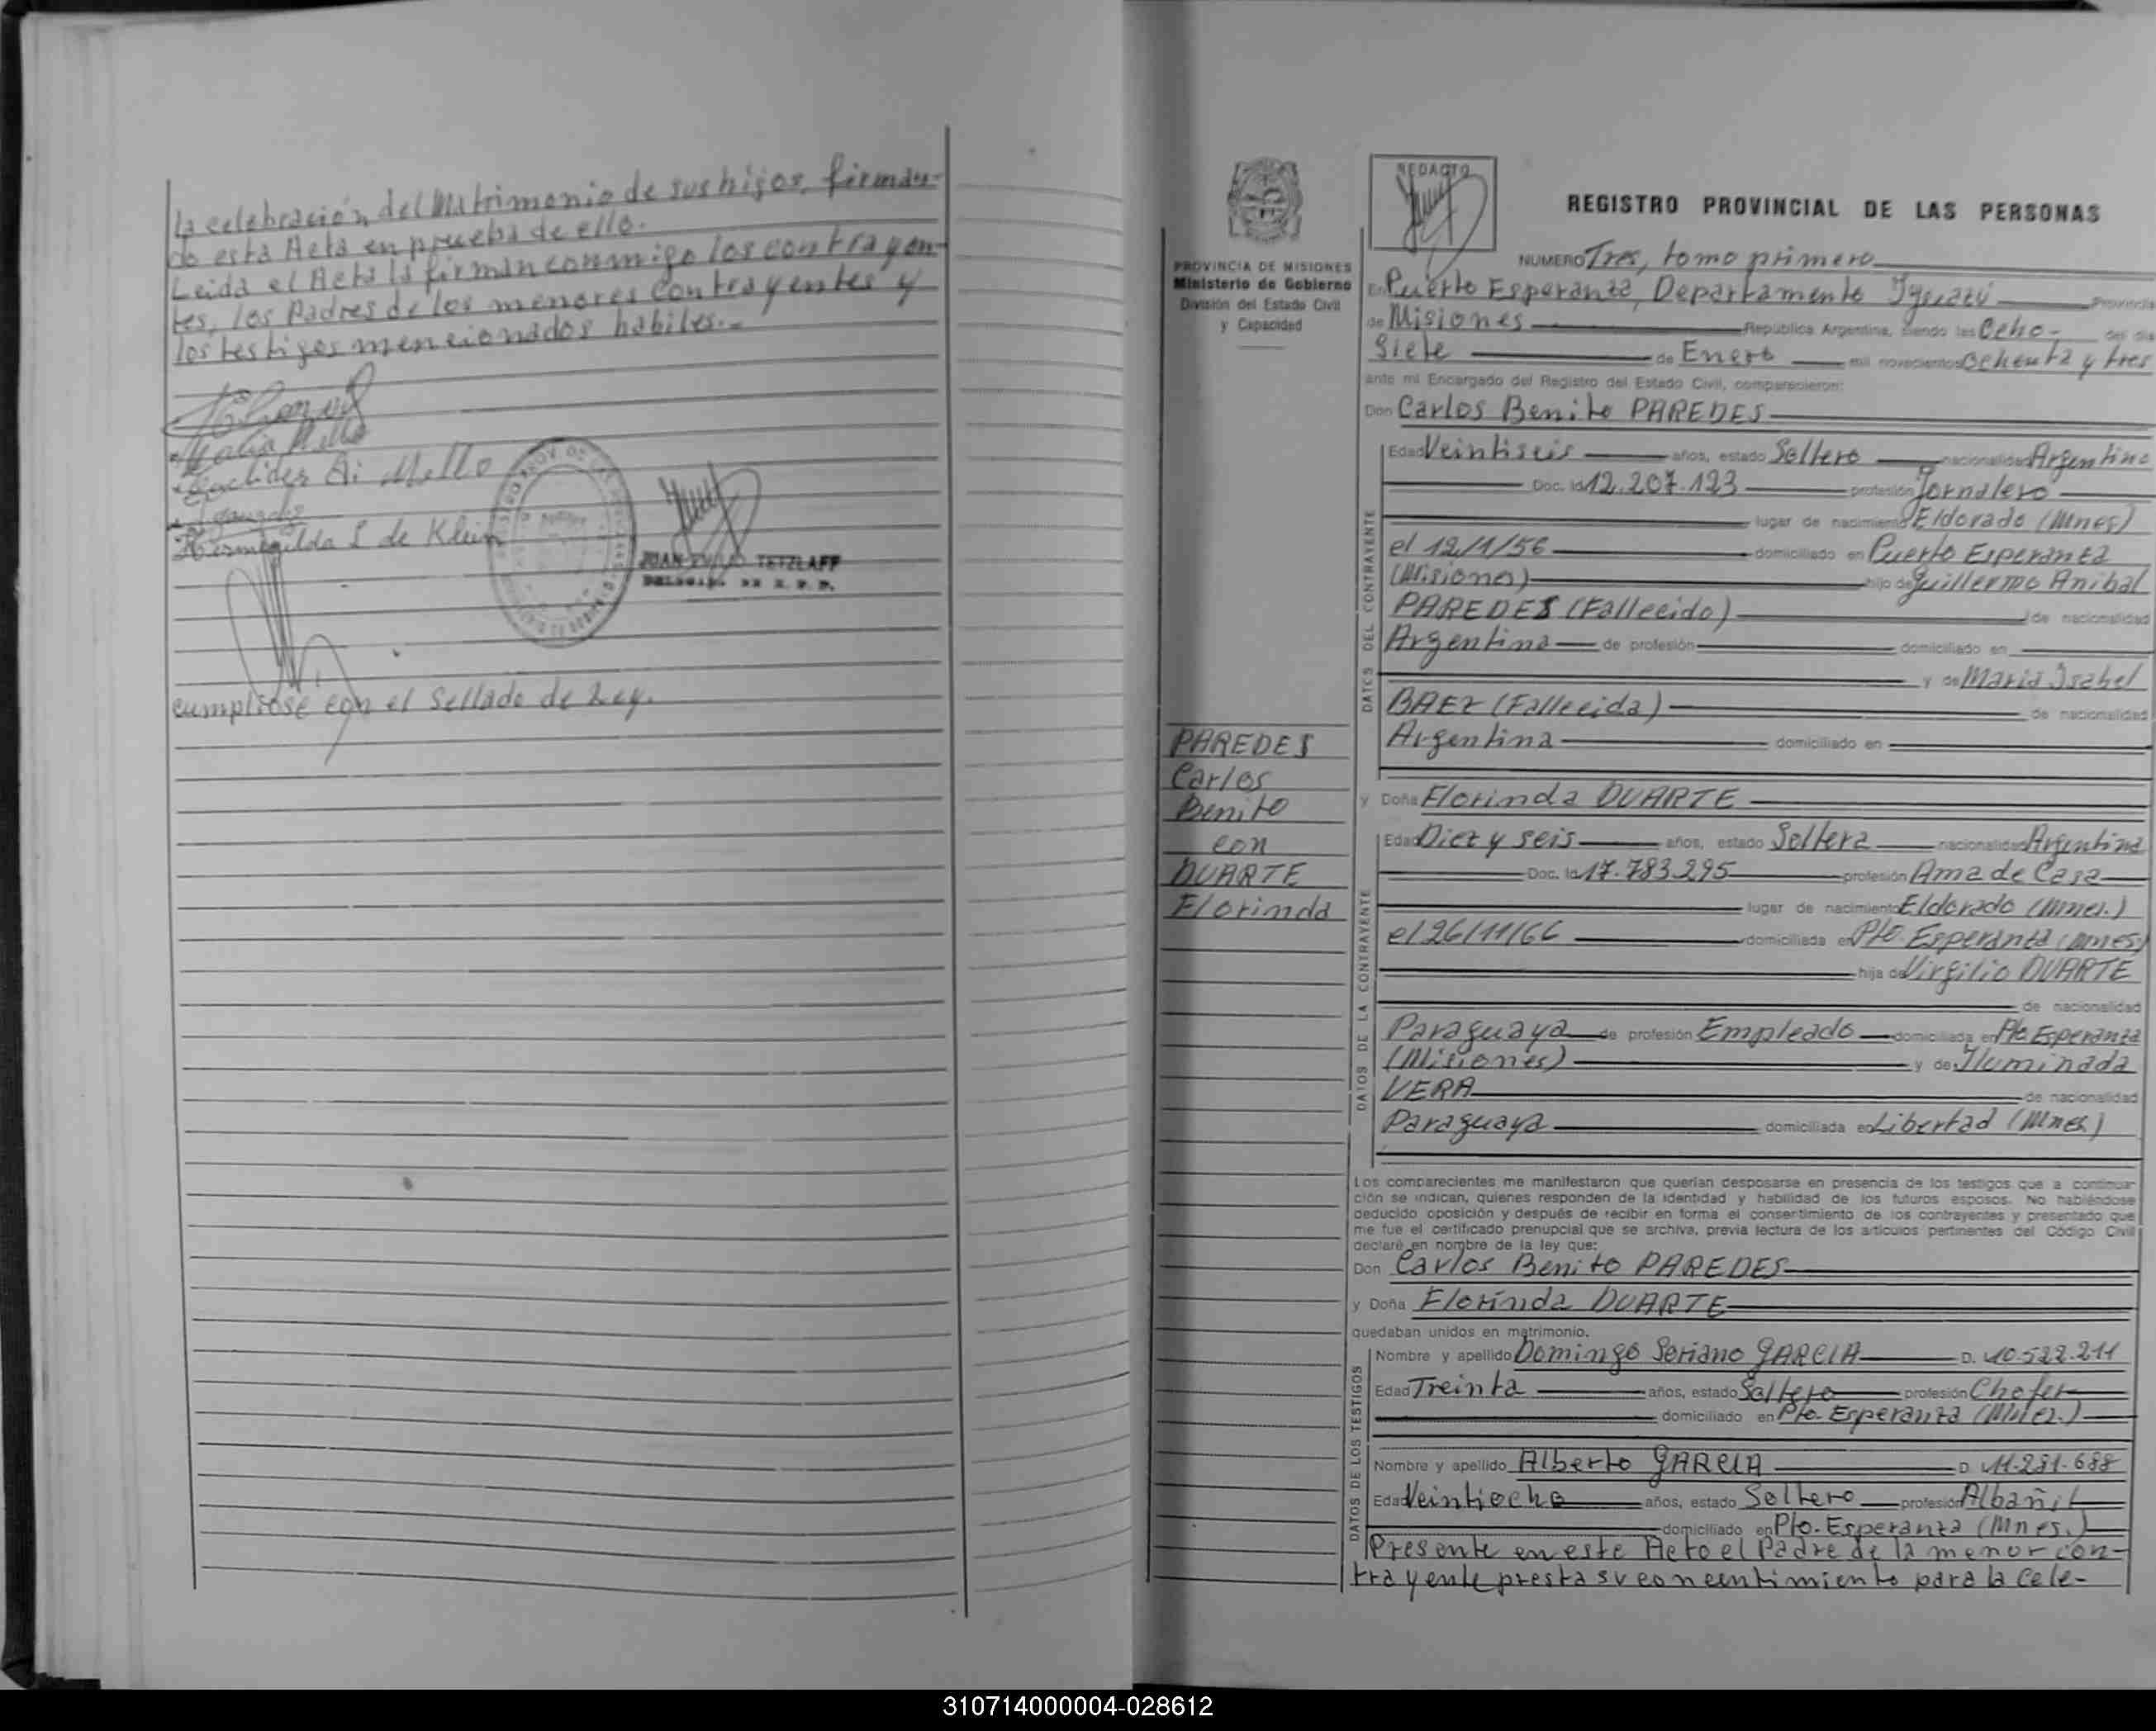 la celebración del Matrimonio de sus hijos, firman-
do esta Acta en prueba de ello.
Leida el Acta la firman conmigo los contrayen-
tes, los Padres de los menores contrayentes y
los testigos mencionados habiles.-
Euclides A. Mello
Hermegilda L de Klein
JUAN TETZLAFF
cumpliose con el Sellado de Ley.
REDACTO
REGISTRO PROVINCIAL DE LAS PERSONAS
PROVINCIA DE MISIONES
Ministerio de Gobierno
División del Estado Civil
y Capacidad
NUMERO Tres, tomo primero
En Puerto Esperanza, Departamento Iguazú Provincia
de Misiones República Argentina, siendo las Ocho - del día
Siete de Enero mil novecientos Ochenta y tres
ante mi Encargado del Registro del Estado Civil, comparecieron:
Don Carlos Benito PAREDES
DATOS DEL CONTRAYENTE
Edad Veintiseis años, estado Soltero nacionalidad Argentina
Doc. Id 12.207.123 profesión Jornalero
lugar de nacimiento Eldorado (Mnes)
el 12/1/56 domiciliado en Puerto Esperanza
(Misiones) hijo de Guillermo Anibal
PAREDES (Fallecido) de nacionalidad
Argentina de profesión domiciliado en
y de Maria Isabel
BAEZ (Fallecida) de nacionalidad
Argentina domiciliado en
PAREDES
Carlos
Benito
con
DUARTE
Florinda
y Doña Florinda DUARTE
DATOS DE LA CONTRAYENTE
Edad Diez y seis años, estado Soltera nacionalidad Argentina
Doc. Id 17.783.295 profesión Ama de Casa
lugar de nacimiento Eldorado (Mnes.)
el 26/11/66 domiciliada en Pto. Esperanza (Mnes)
hija de Virgilio DUARTE
de nacionalidad
Paraguaya de profesión Empleado domiciliada en Pto. Esperanza
(Misiones) y de Iluminada
VERA de nacionalidad
Paraguaya domiciliada en Libertad (Mnes)
Los comparecientes me manifestaron que querían desposarse en presencia de los testigos que a continua-
ción se indican, quienes responden de la identidad y habilidad de los futuros esposos. No habiéndose
deducido oposición y después de recibir en forma el consentimiento de los contrayentes y presentado que
me fue el certificado prenupcial que se archiva, previa lectura de los artículos pertinentes del Código Civil
declaré en nombre de la ley que:
Don Carlos Benito PAREDES
y Doña Florinda DUARTE
quedaban unidos en matrimonio.
DATOS DE LOS TESTIGOS
Nombre y apellido Domingo Soriano GARCIA D. 10.522.211
Edad Treinta años, estado Soltero profesión Chofer
domiciliado en Pto. Esperanza (Mnes.)
Nombre y apellido Alberto GARCIA D 11.281.688
Edad Veintiocho años, estado Soltero profesión Albañil
domiciliado en Pto. Esperanza (Mnes.)
Presente en este Acto el Padre de la menor con-
trayente presta su concentimiento para la cele-
310714000004-028612